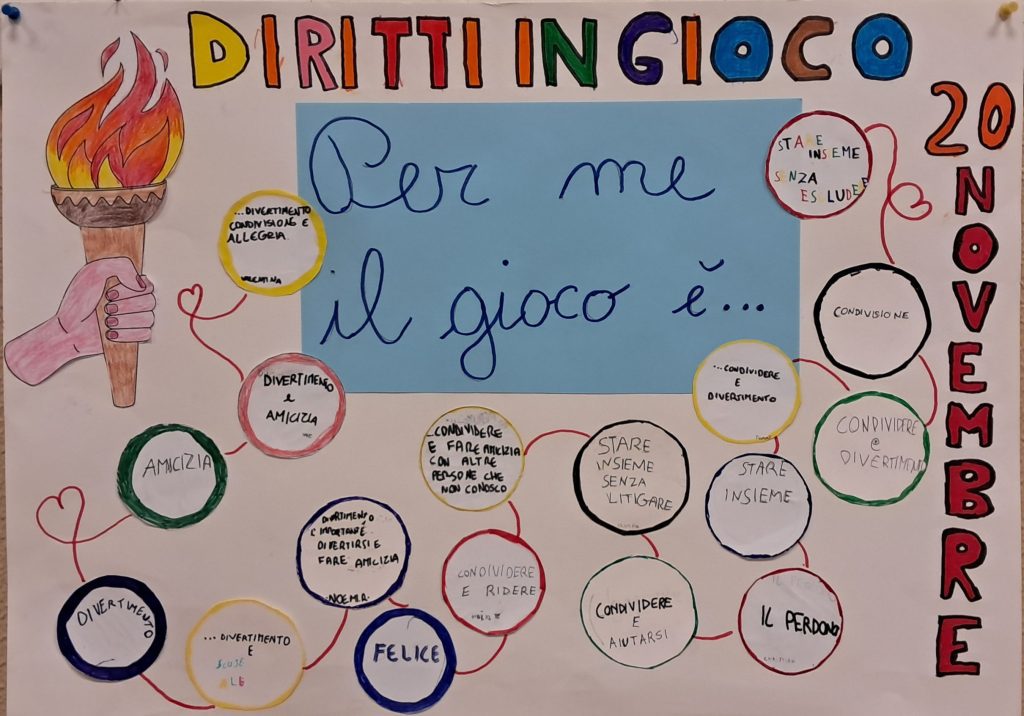 DIRITTI IN GIOCO
20
NOVEMBRE
Per me
il gioco è...
...DIVERTIMENTO
CONDIVISIONE E
ALLEGRIA
VALENTINA
DIVERTIMENTO
e
AMICIZIA
AMICIZIA
DIVERTIMENTO
...DIVERTIMENTO
E
DIVERTIMENTO
È IMPORTANTE
DIVERTIRSI E
FARE AMICIZIA
FELICE
CONDIVIDERE
E RIDERE
...CONDIVIDERE
E FARE AMICIZIA
CON ALTRE
PERSONE CHE
NON CONOSCO
STARE
INSIEME
SENZA
LITIGARE
CONDIVIDERE
E
AIUTARSI
IL PERDONO
STARE
INSIEME
...CONDIVIDERE
E
DIVERTIMENTO
CONDIVIDERE
e
DIVERTIMENTO
CONDIVISIONE
STARE
INSIEME
SENZA
ESCLUDERE